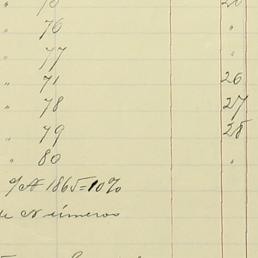 " 76 "
" 77 "
" 71 26
" 78 27
" 79 28
" 80 "
1865=10%
de Números